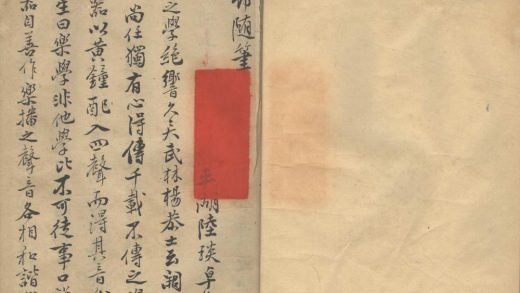 随筆
平湖陸琰卓
之学絶響久矣武林楊恭士云闢
尚任獨有心得傳千載不傳之
器以黄鐘配入四聲而得其音
生曰樂學非他學比不可徒事口
器自善作樂播之聲音各相和諧